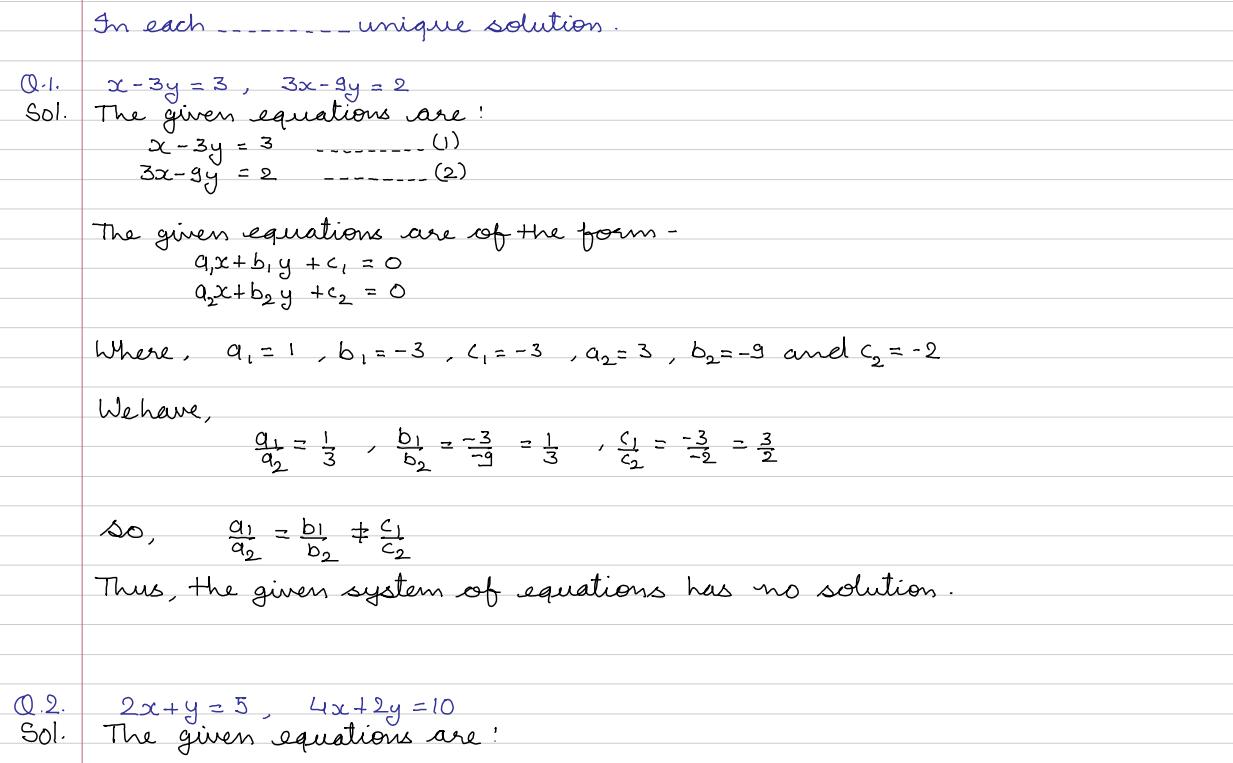 In each --------- unique solution.
Q.1. x - 3y = 3 , 3x - 9y = 2
Sol. The given equations are :
x - 3y = 3 --------- (1)
3x - 9y = 2 -------- (2)
The given equations are of the form -
a₁x + b₁y + c₁ = 0
a₂x + b₂y + c₂ = 0
Where, a₁ = 1 , b₁ = -3 , c₁ = -3 , a₂ = 3 , b₂ = -9 and c₂ = -2
We have,
a₁/a₂ = 1/3 , b₁/b₂ = -3/-9 = 1/3 , c₁/c₂ = -3/-2 = 3/2
So, a₁/a₂ = b₁/b₂ ≠ c₁/c₂
Thus, the given system of equations has no solution.
Q.2. 2x + y = 5 , 4x + 2y = 10
Sol. The given equations are :